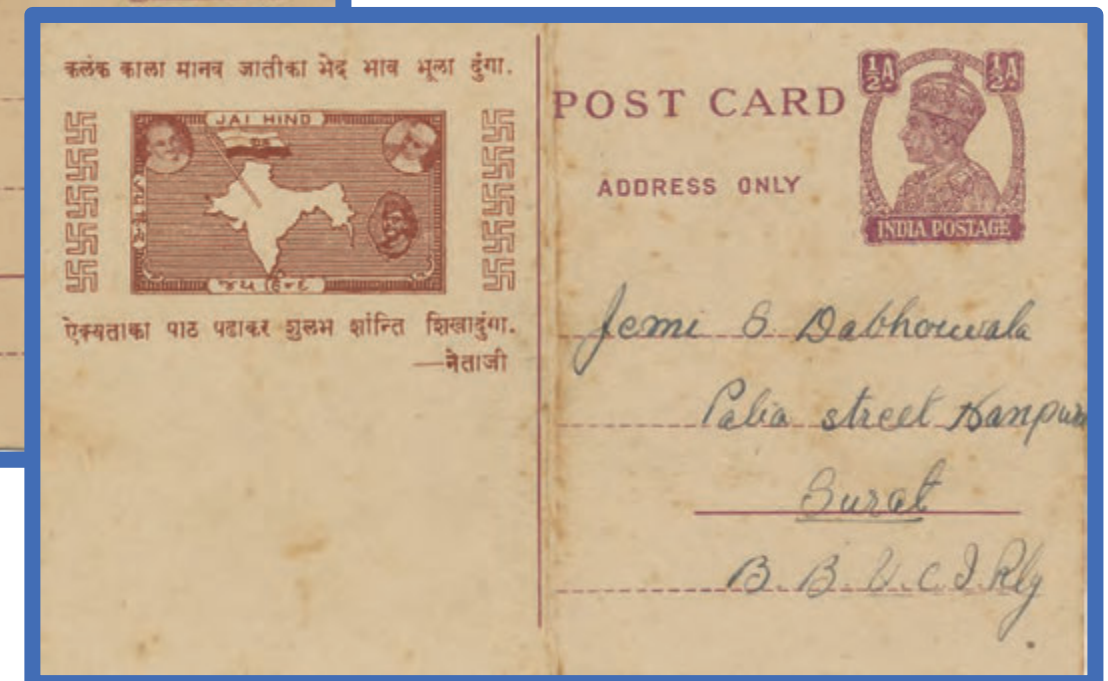 कलंक काला मानव जातीका भेद भाव भूला दुंगा.
JAI HIND
જય હિન્દ
ऐक्यताका पाठ पढाकर शुलभ शांन्ति शिखादुंगा.
—नेताजी
POST CARD
½A ½A
ADDRESS ONLY
INDIA POSTAGE
Jemi S. Dabhouwala
Palia street Nanpura
Surat
B. B. & C. I. Rly